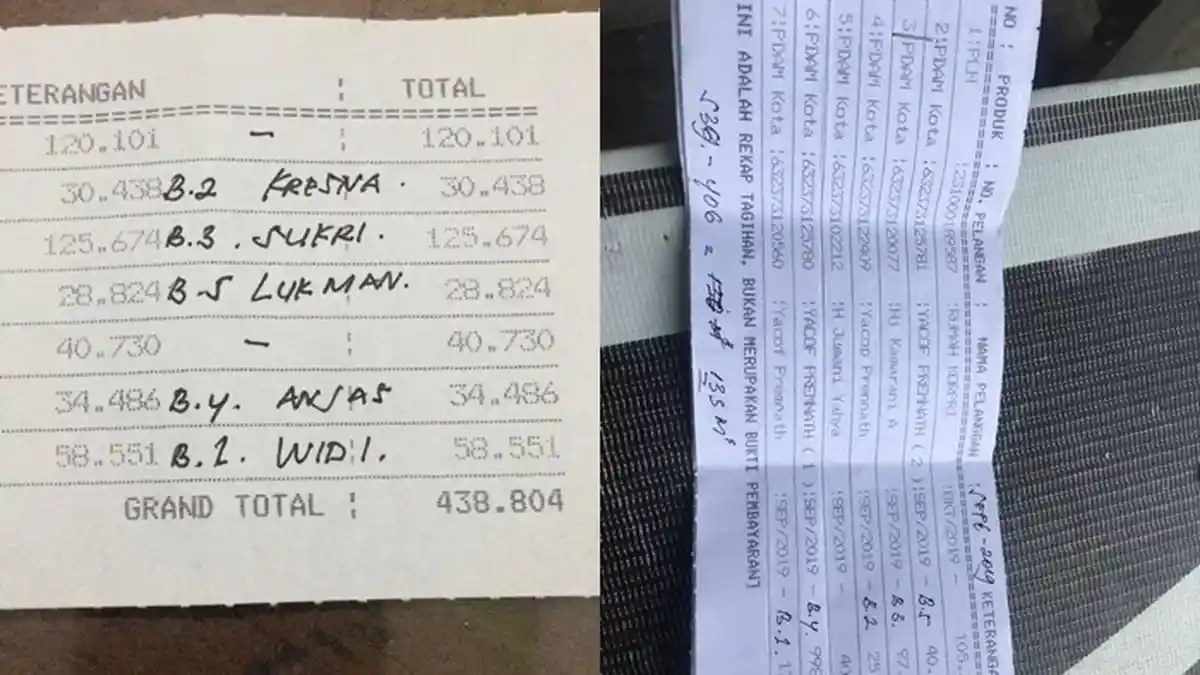 ETERANGAN ¦ TOTAL
120.101 - ¦ 120.101
30.438 B.2 KRESNA . 30.438
125.674 B.3 . SUKRI . 125.674
28.824 B-5 LUKMAN. 28.824
40.730 - ¦ 40.730
34.486 B.4. ANJAS 34.486
58.551 B.1. WIDI. 58.551
GRAND TOTAL ¦ 438.804
NO ¦ PRODUK ¦ NO. PELANGAN ¦ NAMA PELANGGAN ¦ SEPT - 2019 KETERANGA
1¦PLN ¦231000189587 ¦RUMAH KORPRI ¦OKT/2019 - 105.
2¦PDAM Kota ¦632373125781 ¦YACOF PREMNATH ( 2 )¦SEP/2019 - B.5 40.
3¦PDAM Kota ¦632373120077 ¦Hj Kamariani A ¦SEP/2019 - B3. 97.
4¦PDAM Kota ¦632373122909 ¦Yacop Premnath ¦SEP/2019 - B.2 25
5¦PDAM Kota ¦632373102212 ¦H Jumani Yahya ¦SEP/2019 - 40
6¦PDAM Kota ¦632373125780 ¦YACOF PREMNATH ( 1 )¦SEP/2019 - B.4. 998
7¦PDAM Kota ¦632373120560 ¦Yacof Premnath ¦SEP/2019 - B.1. 1
INI ADALAH REKAP TAGIHAN, BUKAN MERUPAKAN BUKTI PEMBAYARAN]
539.-406 = 135 M³